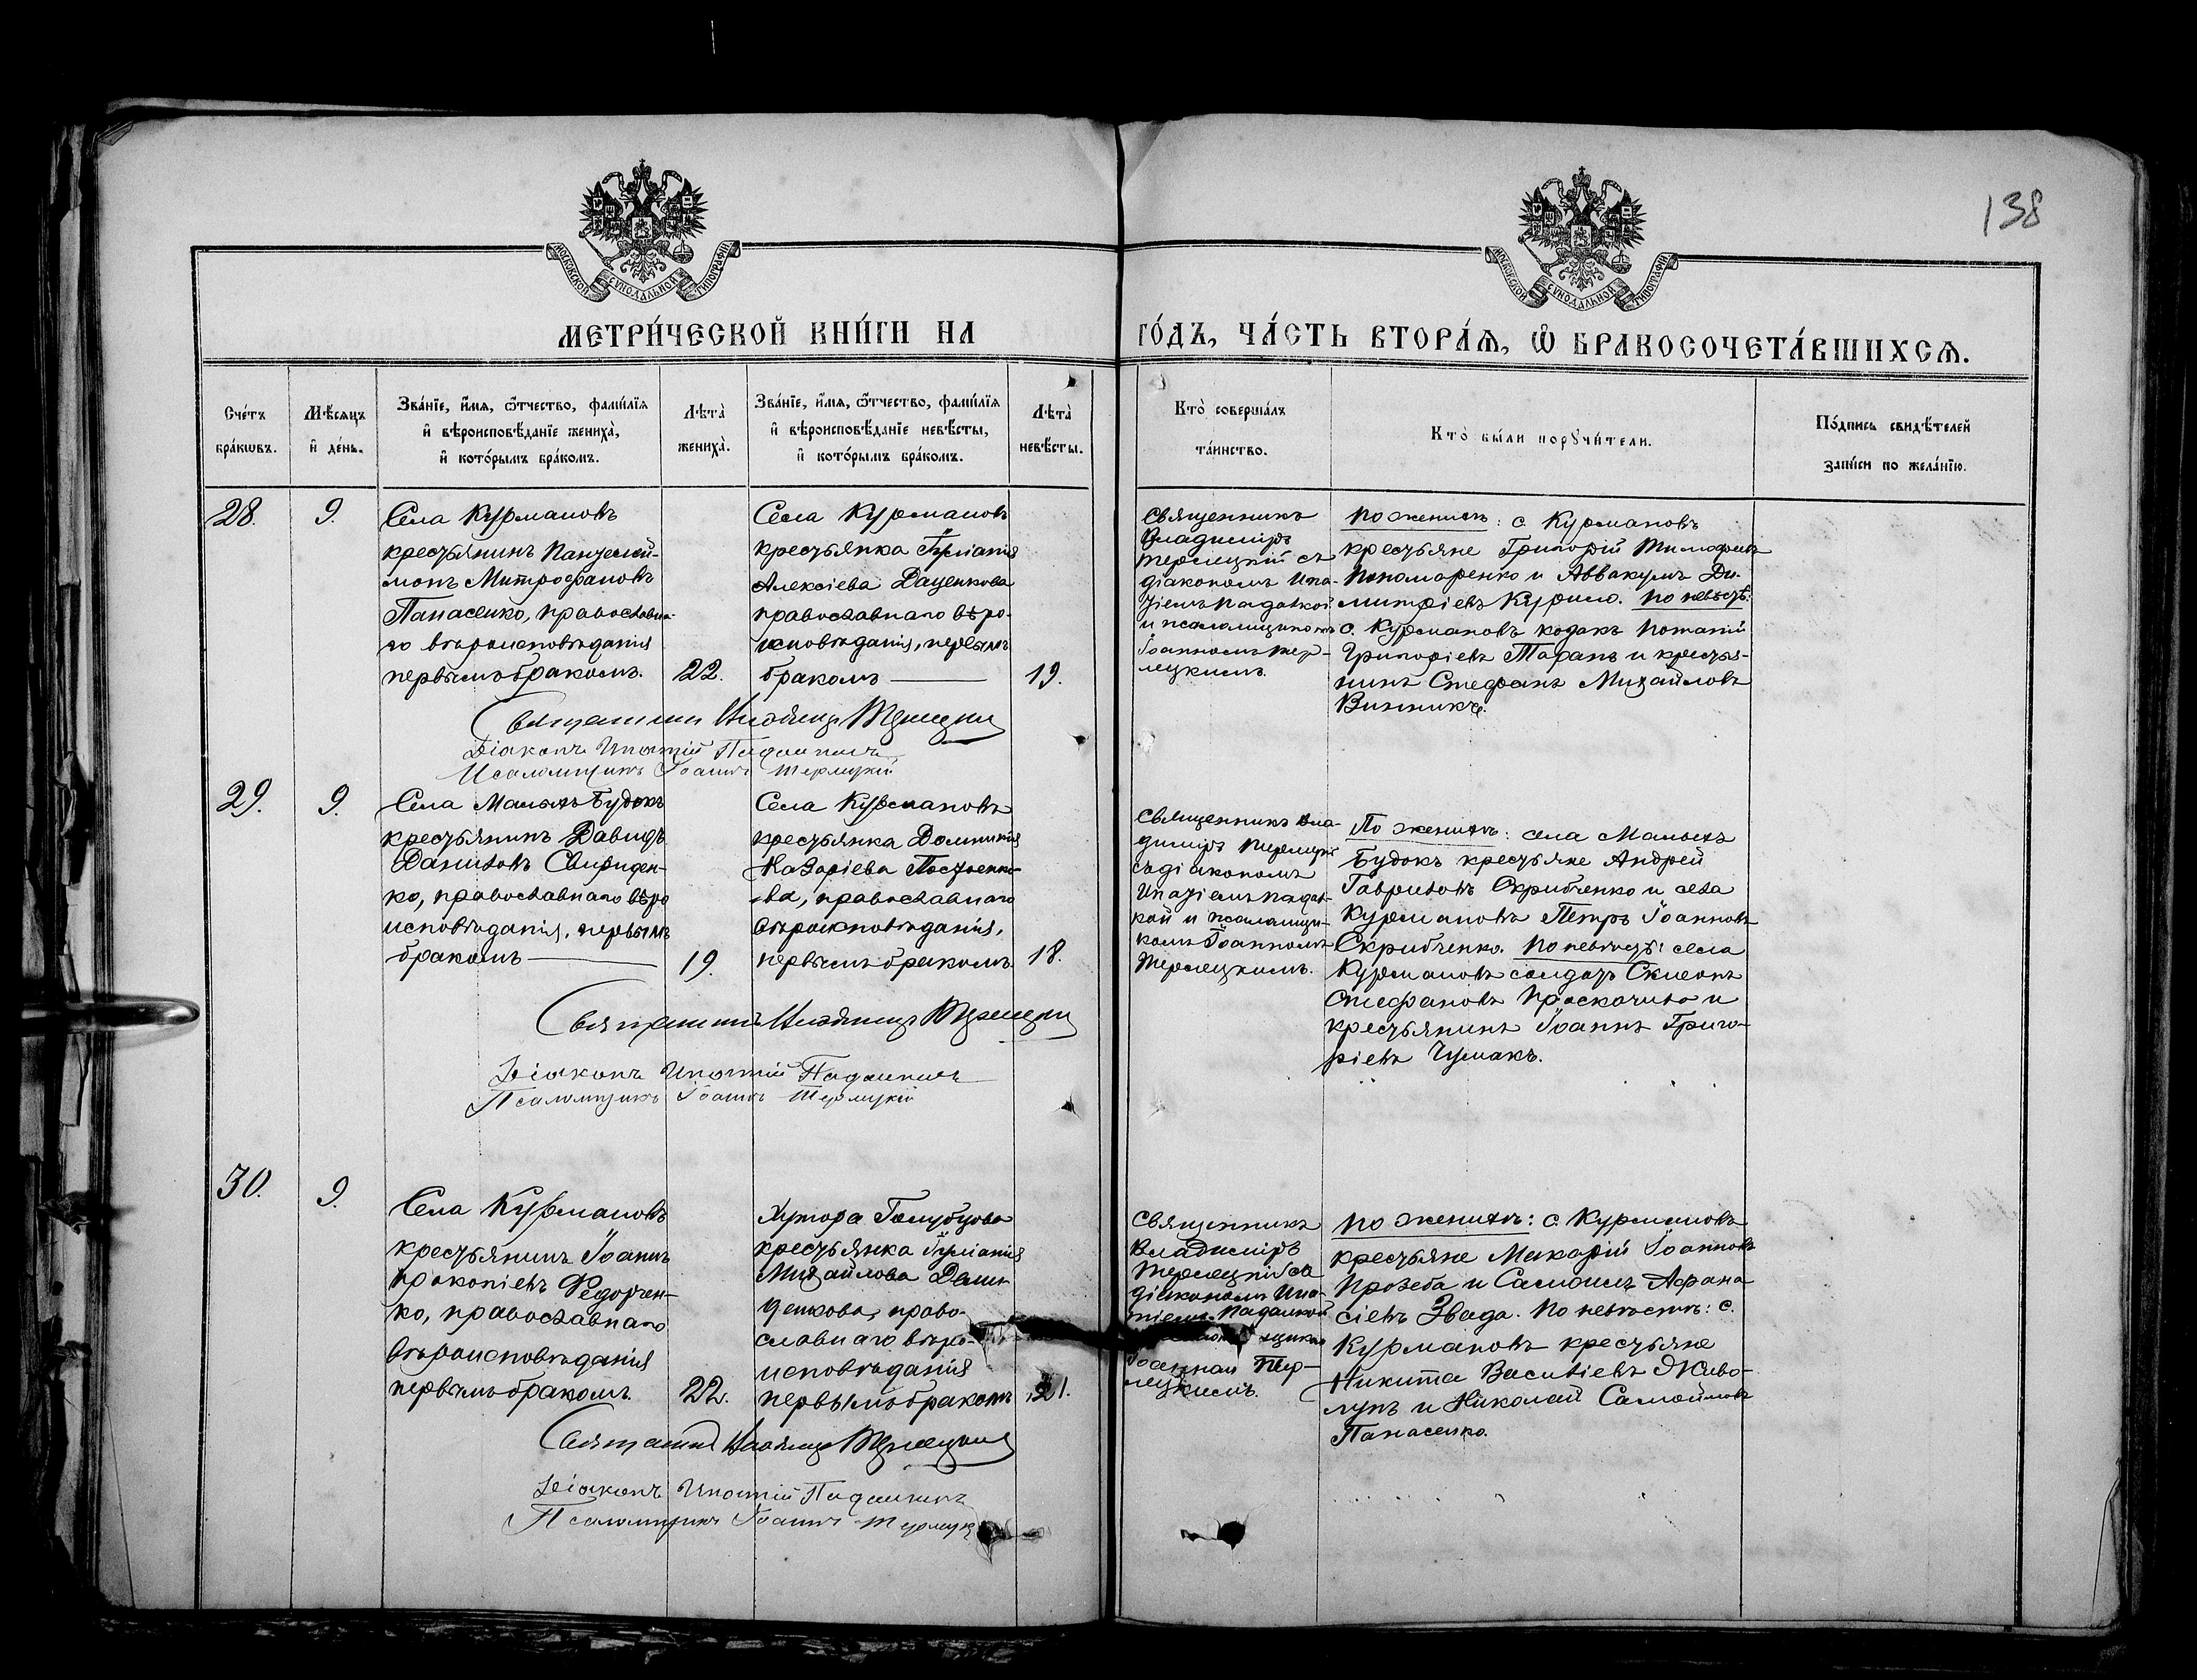 138
МОСКОВСКОЙ СѴНОДАЛЬНОЙ ТИПОГРАФІИ
МОСКОВСКОЙ СѴНОДАЛЬНОЙ ТИПОГРАФІИ
МЕТРИ́ЧЕСКОЙ КНИ́ГИ НА
ГО́ДЪ, ЧА́СТЬ ВТОРА́Ѧ, Ѽ БРАКОСОЧЕТА́ВШИХСѦ.
Сче́тъ
бра́кѡвъ.
Мѣ́сяцъ
и҆ де́нь.
Зва́нїе, и҆́мя, ѻ҆́тчество, фамѝлїя
и҆ вѣроисповѣ́данїе жениха̀,
и҆ кото́рымъ бра́комъ.
Лѣта̀
жениха̀.
Зва́нїе, и҆́мя, ѻ҆́тчество, фами́лїя
и҆ вѣроисповѣ́данїе невѣ́сты,
и҆ кото́рымъ бра́комъ.
Лѣта̀
невѣ́сты.
Кто̀ соверша́лъ
та́инство.
Кто̀ бы́ли порꙋчи́тели.
По́дпись свидѣ́телей
за́писи по жела́нїю.
28.
9.
Села Курмановъ
крестьянинъ Пантелей-
монъ Митрофановъ
Панасенко, православна-
го вѣроисповѣданія
первымъ бракомъ.
22.
Села Курмановъ
крестьянка Іуліанія
Алексіева Даценкова
православнаго вѣро-
исповѣданія, первымъ
бракомъ
19.
Священникъ
Владиміръ
Терлецкій съ
діакономъ Ипа-
тіемъ Падалкой
и псаломщикомъ
Іоанномъ Тер-
лецкимъ.
По женихѣ: с. Курмановъ
крестьяне Григорій Тимофеевъ
Пономаренко и Аввакумъ Ди-
митріевъ Курило. По невѣстѣ:
с. Курмановъ козакъ Потапій
Григоріевъ Таранъ и крестья-
нинъ Стефанъ Михайловъ
Винникъ.
Священникъ Владиміръ Терлецкій
Діаконъ Ипатій Падалкинъ
Псаломщикъ Іоаннъ Терлецкій
29.
9.
Села Малыхъ Будокъ
крестьянинъ Давидъ
Даниловъ Свириден-
ко, православнаго вѣро
исповѣданія, первымъ
бракомъ
19.
Села Курмановъ
крестьянка Домникія
Назаріева
-ва, православнаго
вѣроисповѣданія,
первымъ бракомъ.
18.
Священникъ Вла-
диміръ Терлецкій
съ діакономъ
Ипатіемъ Падал-
кой и псаломщи-
комъ Іоанномъ
Терлецкимъ.
По женихѣ: села Малыхъ
Будокъ крестьяне Андрей
Гавриловъ Скрибченко и села
Курмановъ Петръ Іоанновъ
Скрибченко. По невѣстѣ: села
Курмановъ солдатъ Симеонъ
Стефановъ Проскочило и
крестьянинъ Іоаннъ Григо-
ріевъ Чумакъ.
Священникъ Владиміръ Терлецкій
Діаконъ Ипатій Падалкинъ
Псаломщикъ Іоаннъ Терлецкій
30.
9.
Села Курмановъ
крестьянинъ Іоаннъ
Прокопіевъ Федорчен-
ко, православнаго
вѣроисповѣданія
первымъ бракомъ.
22.
Хутора Голубцова
крестьянка Іуліанія
Михайлова Деми-
денкова, право-
славнаго вѣро-
исповѣданія
первымъ бракомъ
21.
Священникъ
Владиміръ
Терлецкій съ
діакономъ Ипа-
тіемъ Падалкой
Іоанномъ Тер-
лецкимъ.
По женихѣ: с. Курмановъ
крестьяне Макарій Іоанновъ
и Самоилъ Афана
сіевъ Звада. По невѣстѣ: с.
Курмановъ крестьяне
Никита Василіевъ Живо-
лупъ и Николай Самойловъ
Панасенко.
Священникъ Владиміръ Терлецкій
Діаконъ Ипатій Падалкинъ
Псаломщикъ Іоаннъ Терлецкі